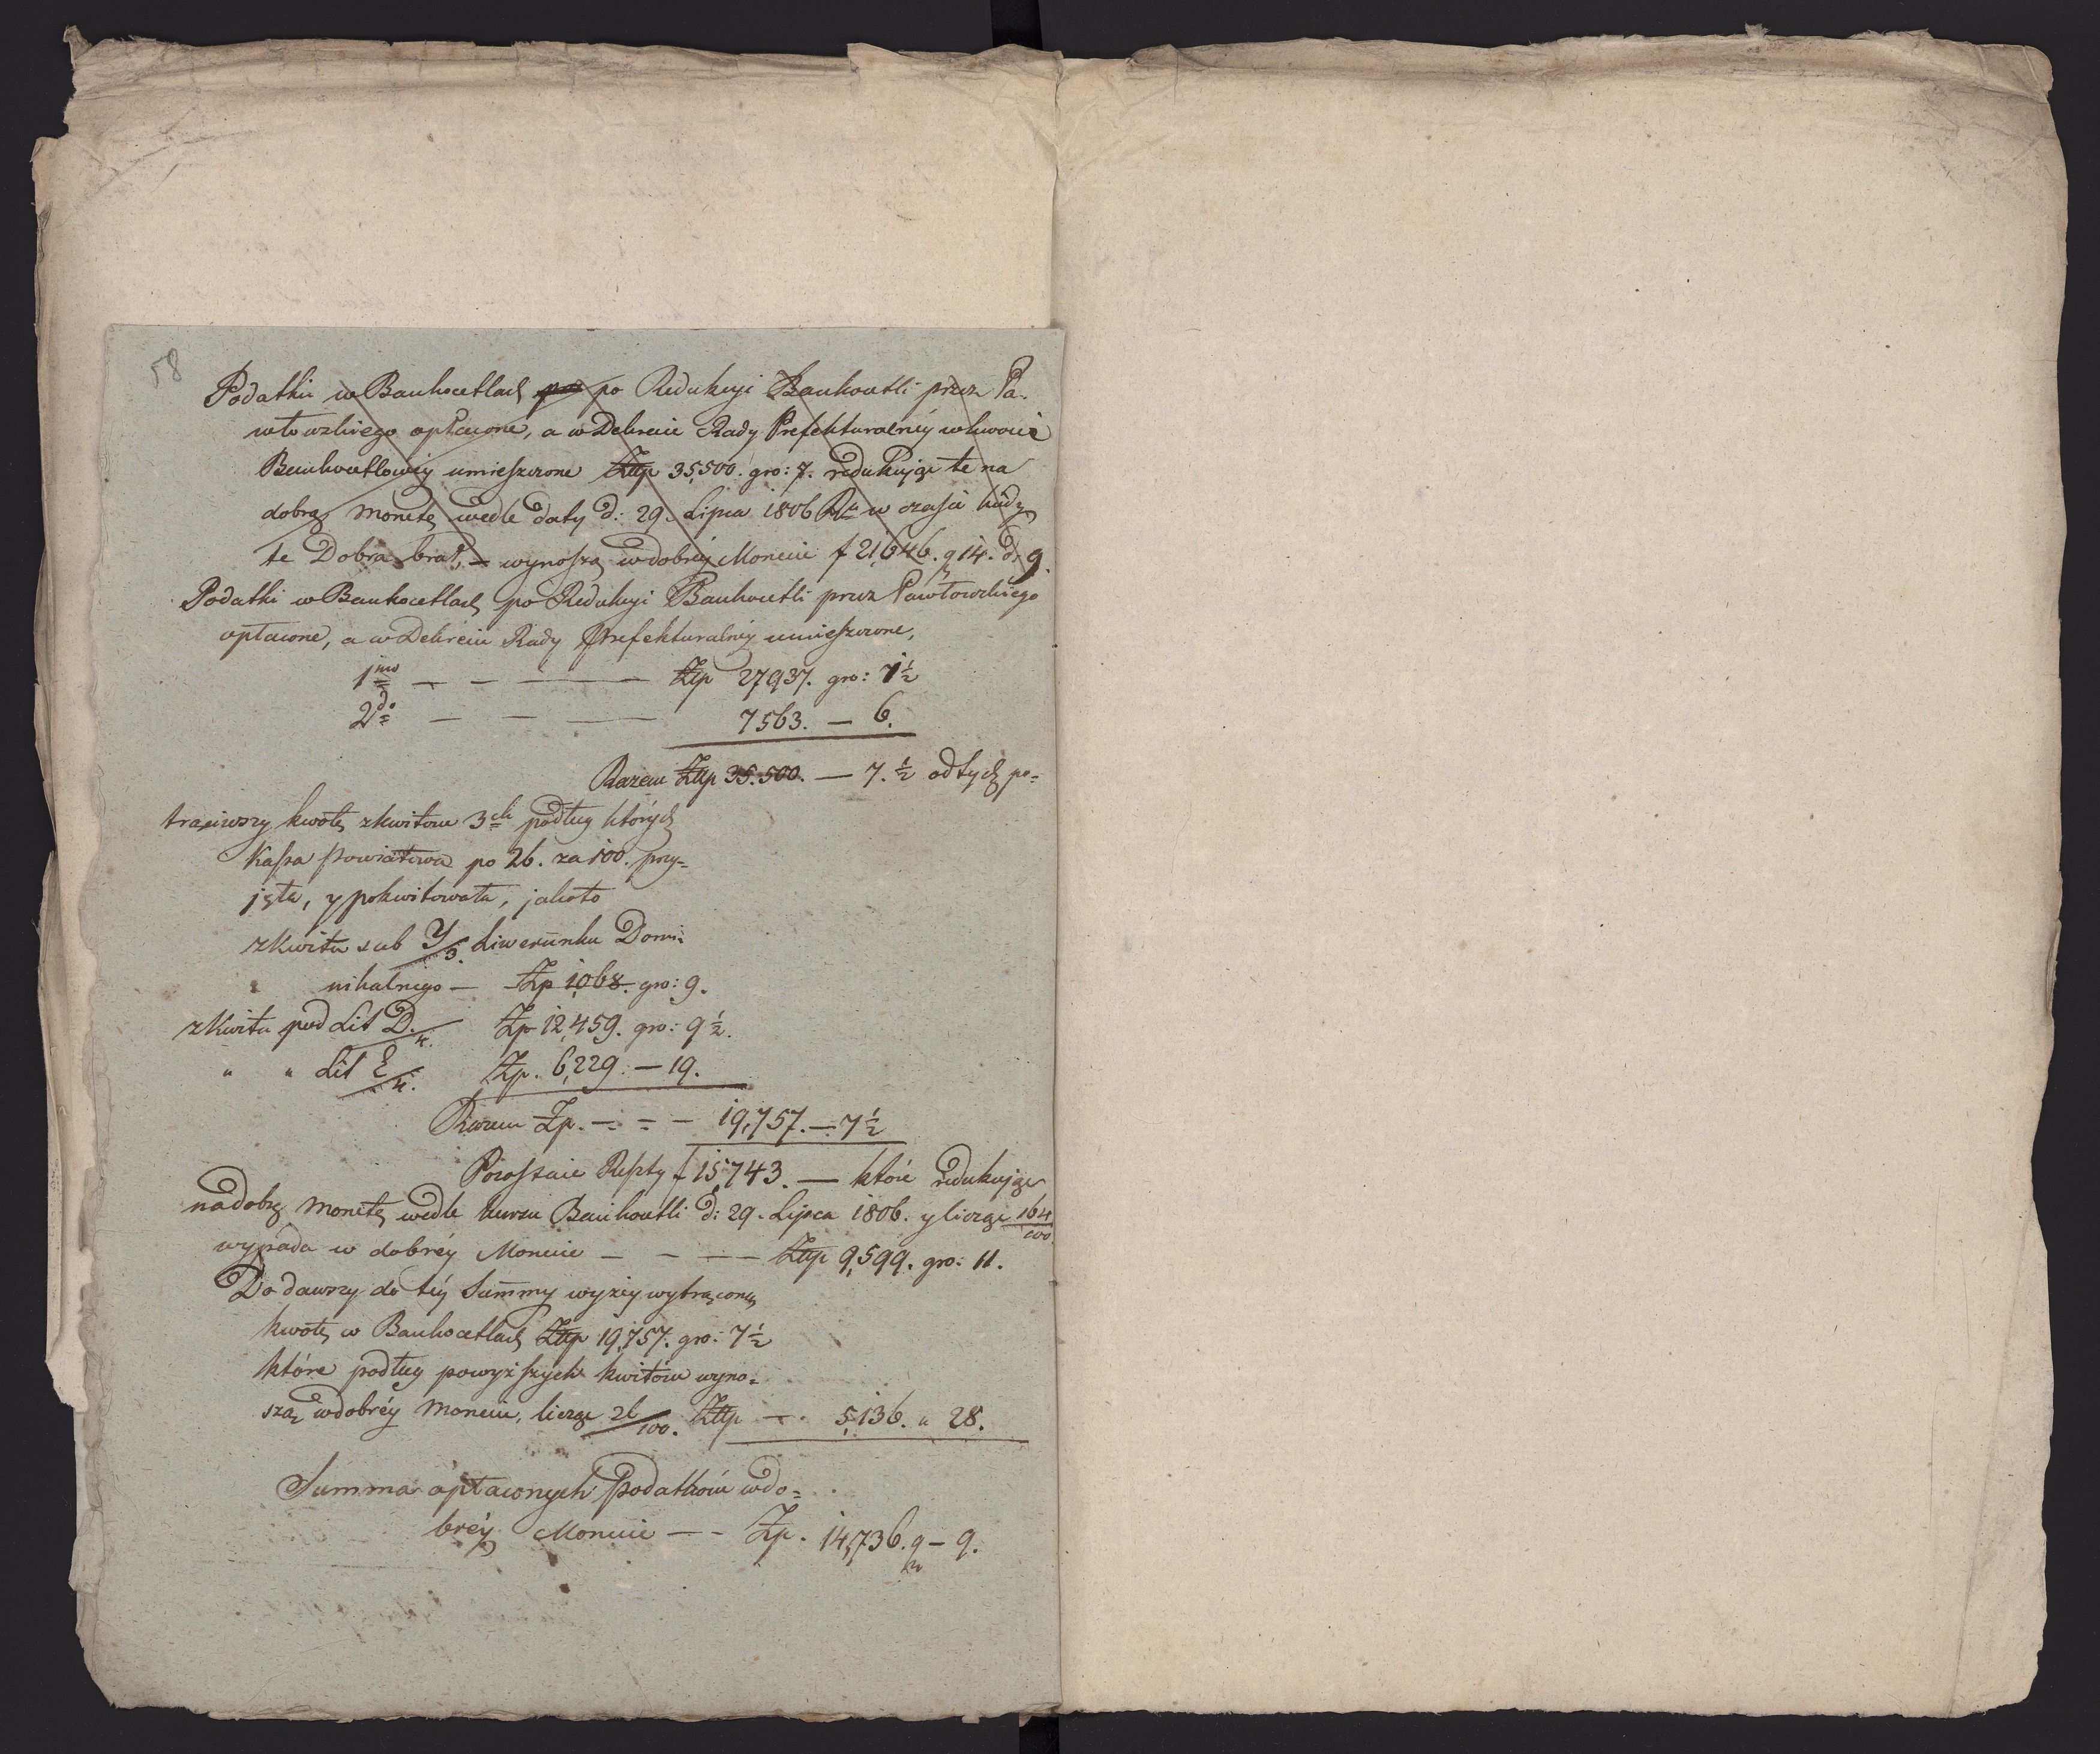 58
Podatki w Bankocetlach po Redukcyi Bankocetli przez Pa-
włowskiego opłacone, a w Dekrecie Rady Prefekturalnéy w kwocie
Bankocetlowéy umieszczone Złtp 35,500. gro: 7. redukując te na
dobrą Monetę wedle daty d: 29. Lipca 1806 Ru w czasie kiedy
te Dobra brał, — wynoszą w dobréy Monecie f 21,646. g 14. d. 9.
Podatki w Bankocetlach po Redukcyi Bankocetli przez Pawłowskiego
opłacone, a w Dekrecie Rady Prefekturalnéy umieszczone,
1mo — — — — Złp 27937. gro: 1½
2do — — — 7563. — 6.
Razem Złtp 35.500. — 7.½ od tych po=
trąciwszy kwotę z kwitów 3ch podług których
Kassa Powiatowa po 26. za 100. przy=
jęła, y pokwitowała, jakoto
z Kwitu sub Y/3. Liwerunku Domi=
nikalnego — Złp 1,068. gro: 9.
z Kwitu pod Lit D./4. Złp 12,459. gro: 9½.
" " Lit E/4. Złp. 6,229. — 19.
Razem Złp. — = — 19,757. — 7½
Pozostaie Reszty f 15,743. — które redukując
na dobrą Monetę wedle kursu Bankocetli d: 29. Lipca 1806. y licząc 164/100
wypada w dobréy Monecie — — — — Złtp 9,599. gro: 11.
Dodawszy do téy Summy wyżéy wytrąconą
kwotę w Bankocetlach Złtp 19,757. gro: 7½
które podług powyższych kwitów wyno=
szą w dobréy Monecie, licząc 26/100. Złtp — 5,136. " 28.
Summa opłaconych Podatków w do=
bréy Monecie — — Złp. 14,736. g — 9.